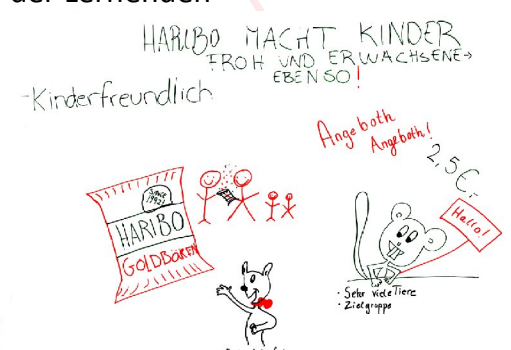 der Lernenden
HARIBO MACHT KINDER
FROH UND ERWACHSENE→
EBENSO!
-Kinderfreundlich
Angeboth
Angeboth!
2,5€,-
Since
HARIBO
GOLDBÄREN
Hallo!
· Sehr viele Tiere
· Zielgruppe